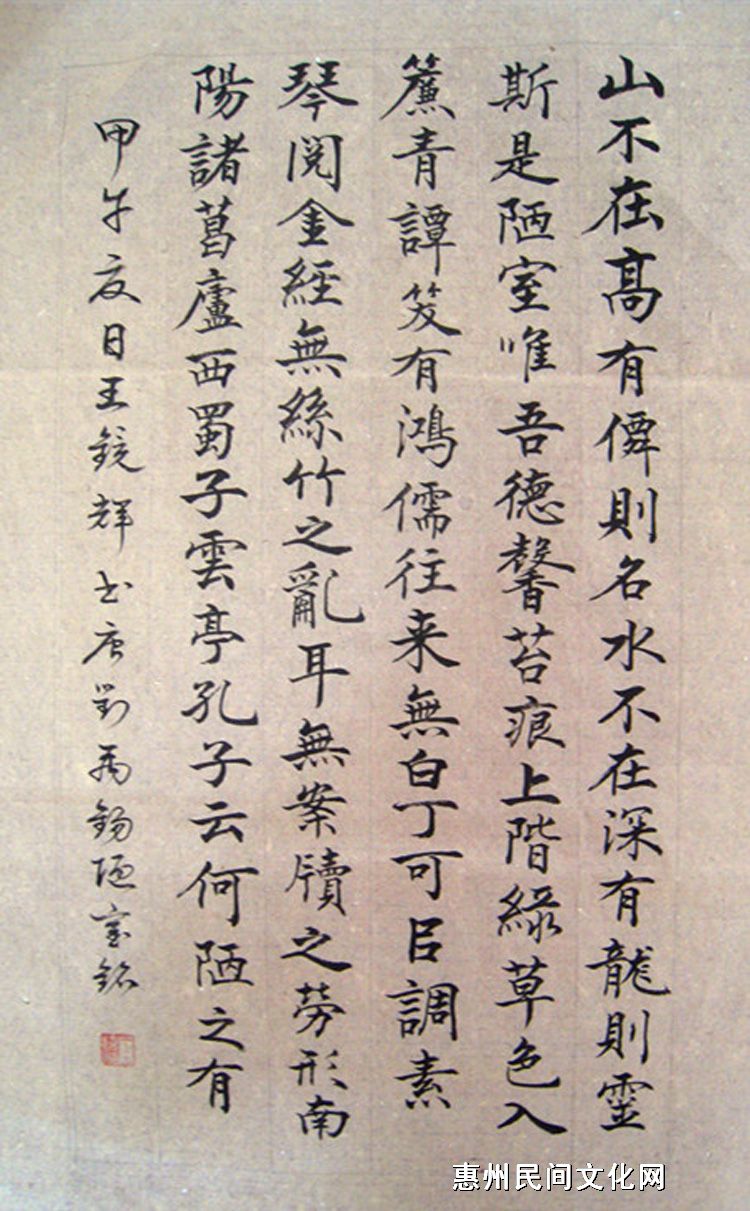 山不在髙有僊則名水不在深有龍則靈
斯是陋室唯吾德馨苔痕上階綠草色入
簾青譚笑有鴻儒往来無白丁可㠯調素
琴閱金經無絲竹之亂耳無案牘之勞形南
陽諸葛廬西蜀子雲亭孔子云何陋之有
甲午夏日王鏡輝书唐劉禹錫陋室銘
惠州民间文化网